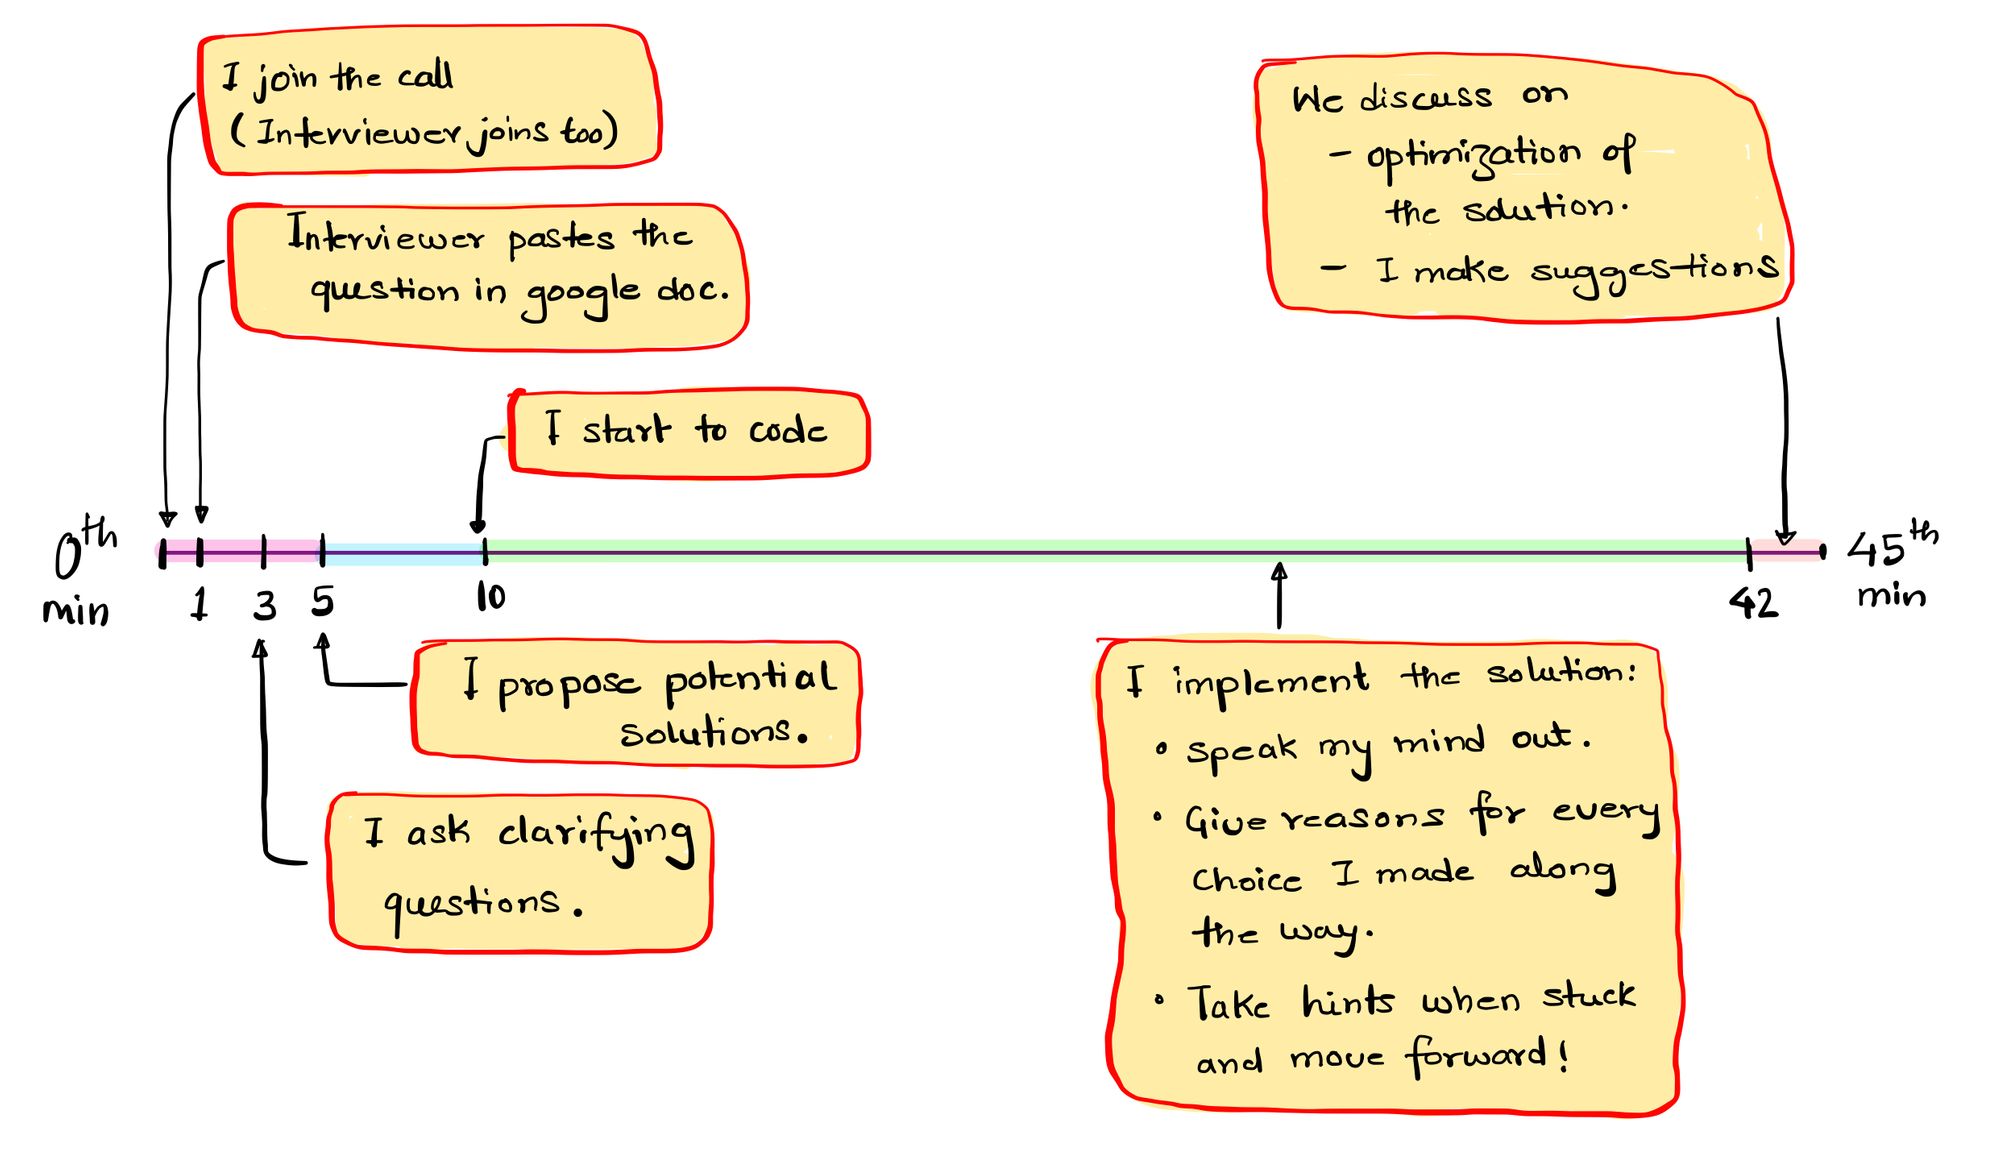 I join the call
(Interviewer joins too)
Interviewer pastes the
question in google doc.
I start to code
We discuss on
- optimization of
the solution.
- I make suggestions
0th
min
1
3
5
10
42
45th
min
I propose potential
solutions.
I ask clarifying
questions.
I implement the solution:
• speak my mind out.
• Give reasons for every
choice I made along
the way.
• Take hints when stuck
and move forward!